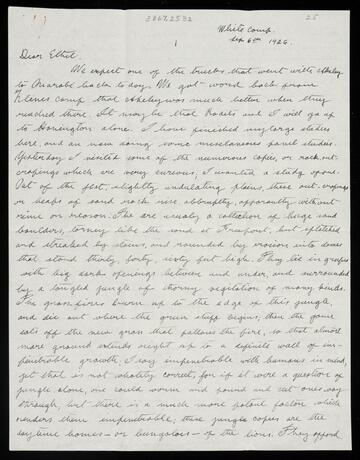 3867.2532
25
White Camp.
Sep 6th 1926.
1
Dear Ethel
We expect one of the trucks that went with
to back to day. We got word back from
Kleins camp that Akeley was much better when they
reached there. It may be that Raddatz and I will go up
to alone. I have finished my large studies
here, and am now doing some miscellaneous panel studies.
Yesterday I visited some of the numerous copies, or rock out-
cropings which are very curious, I wanted a study upon.
Out of the flat, slightly undulating plains, these out-cropings
or heaps of sand rock rise abbruptly, apparently without
rime or reason. The are usualy a collection of huge sand
boulders, torney like the sand at Freeport, but splitted
and streaked by stains, and rounded by erosion into domes
that stand thirty, forty, sixty feet high. They lie in groups
with big dark openings between and under, and surrounded
by a tangled jungle of thorny vegitation of many kinds.
The grass fires burn up to the edge of this jungle,
and die out where the green stuff begins, then the game
eats off the new grass that follows the fire, so that almost
mere ground extends right up to a definite wall of im-
penitrable growth. I say impenitrable with humans in mind,
yet that is not wholely correct, for if it were a question of
jungle alone, one could worm and pound and cut ones way
through, but there is a much more potent factor which
renders them impenitrable; these jungle copies are the
daytime homes - or bungalos - of the lions. They afford